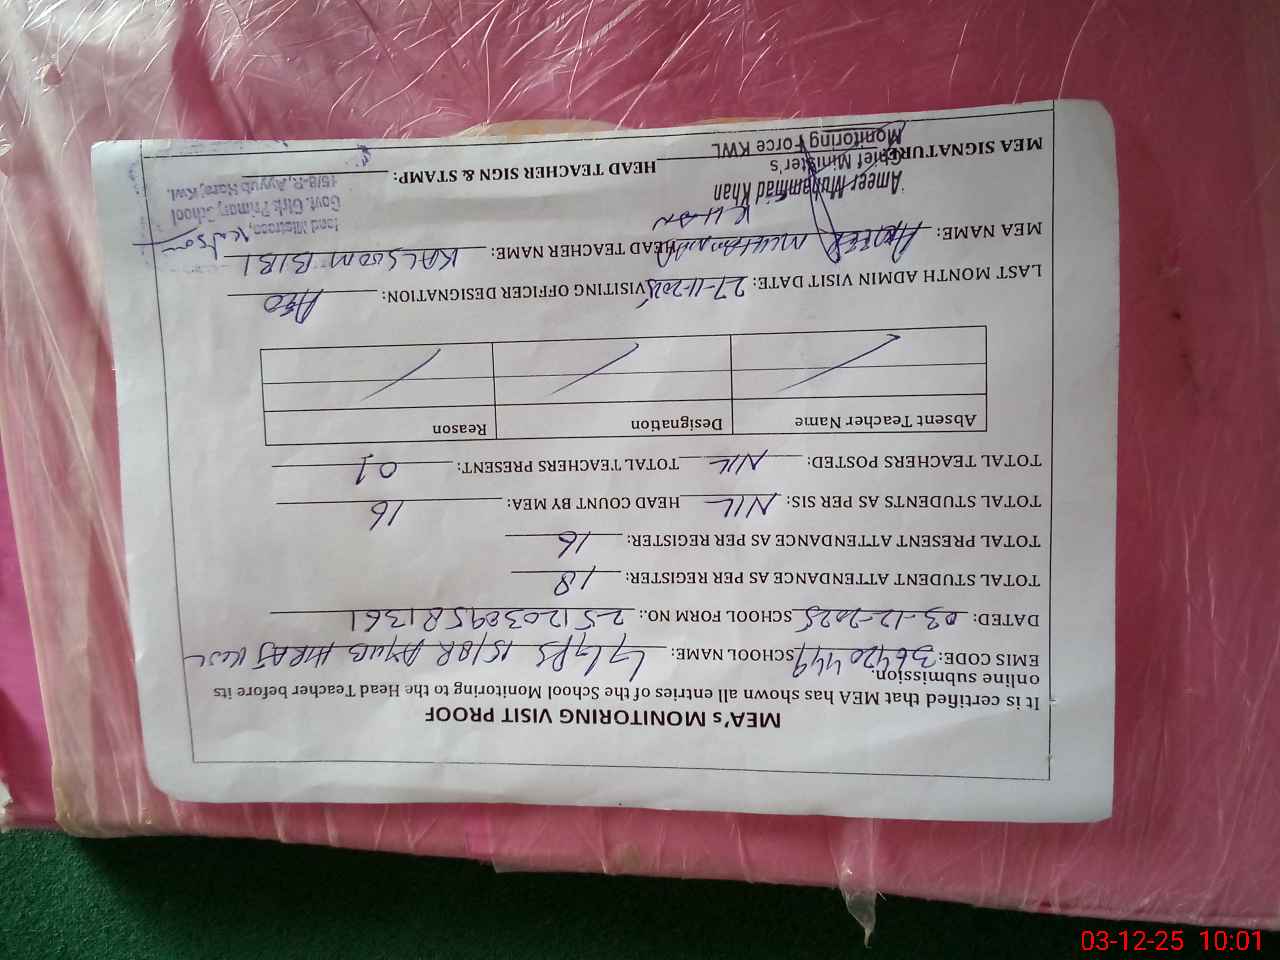 MEA's MONITORING VISIT PROOF
It is certified that MEA has shown all entries of the School Monitoring to the Head Teacher before its
online submission.
EMIS CODE: 36420449 SCHOOL NAME: GGPS 15/8R AYUB HIRAJ KWL
DATED: 03-12-2025 SCHOOL FORM NO.: 2512030958 1361
TOTAL STUDENT ATTENDANCE AS PER REGISTER: 18
TOTAL PRESENT ATTENDANCE AS PER REGISTER: 16
TOTAL STUDENTS AS PER SIS: NIL HEAD COUNT BY MEA: 16
TOTAL TEACHERS POSTED: NIL TOTAL TEACHERS PRESENT: 01
Absent Teacher Name Designation Reason
LAST MONTH ADMIN VISIT DATE: 27-11-2025 VISITING OFFICER DESIGNATION: AEO
MEA NAME: AMEER MUHAMMAD KHAN HEAD TEACHER NAME: KALSOOM BIBI
MEA SIGNATURE HEAD TEACHER SIGN & STAMP:
Ameer Muhammad Khan
Chief Minister's
Monitoring Force KWL
Head Mistress,
Govt. Girls Primary School
15/8-R, Ayyub Haraj Kwl.
03-12-25 10:01